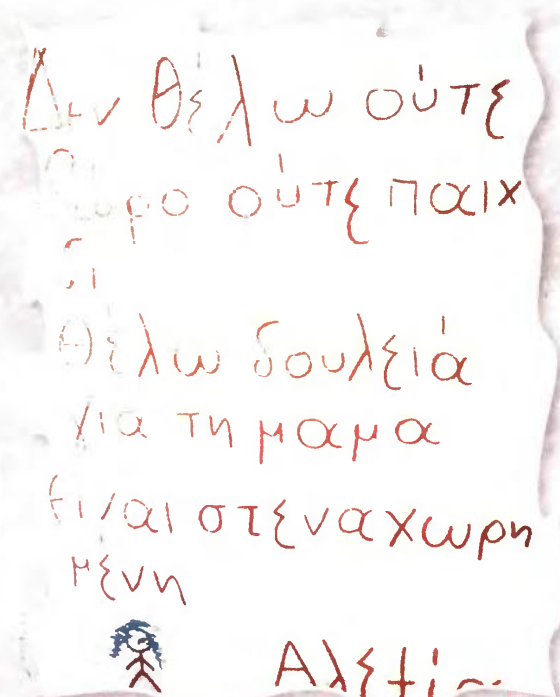 Δεν θέλω ούτε
δωρο ούτε παιχ
δι
Θέλω δουλειά
για τη μαμα
είναι στεναχωρη
μενη